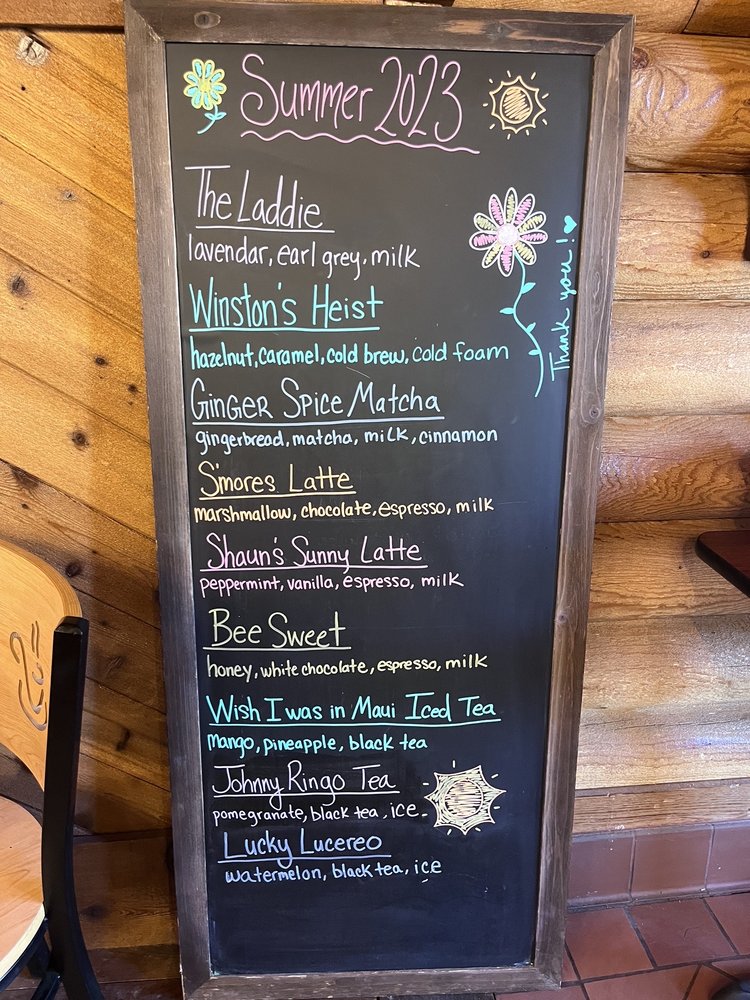 Summer 2023
The Laddie
lavendar, earl grey, milk
Winston's Heist
hazelnut, caramel, cold brew, cold foam
Ginger Spice Matcha
gingerbread, matcha, milk, cinnamon
S'mores Latte
marshmallow, chocolate, espresso, milk
Shaun's Sunny Latte
peppermint, vanilla, espresso, milk
Bee Sweet
honey, white chocolate, espresso, milk
Wish I was in Maui Iced Tea
mango, pineapple, black tea
Johnny Ringo Tea
pomegranate, black tea, ice
Lucky Lucereo
watermelon, black tea, ice
Thank you!